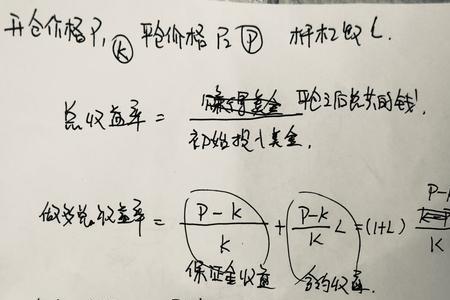 开仓价格 P₁ K 平仓价格 P₂ P 杠杆倍数 L.
总收益率 = 平仓之后总共的钱! / 初始投入资金.
做多总收益率 = (P-K)/K + (P-K)/K L = (1+L) P-K / K
保证金收益 合约收益.